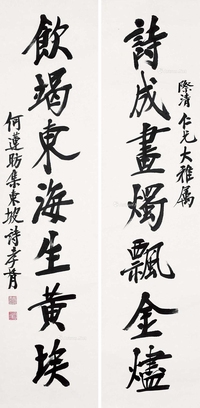 際清仁兄大雅属
詩成畫燭飄金燼
飲竭東海生黃埃
何蓮舫集東坡詩孝胥